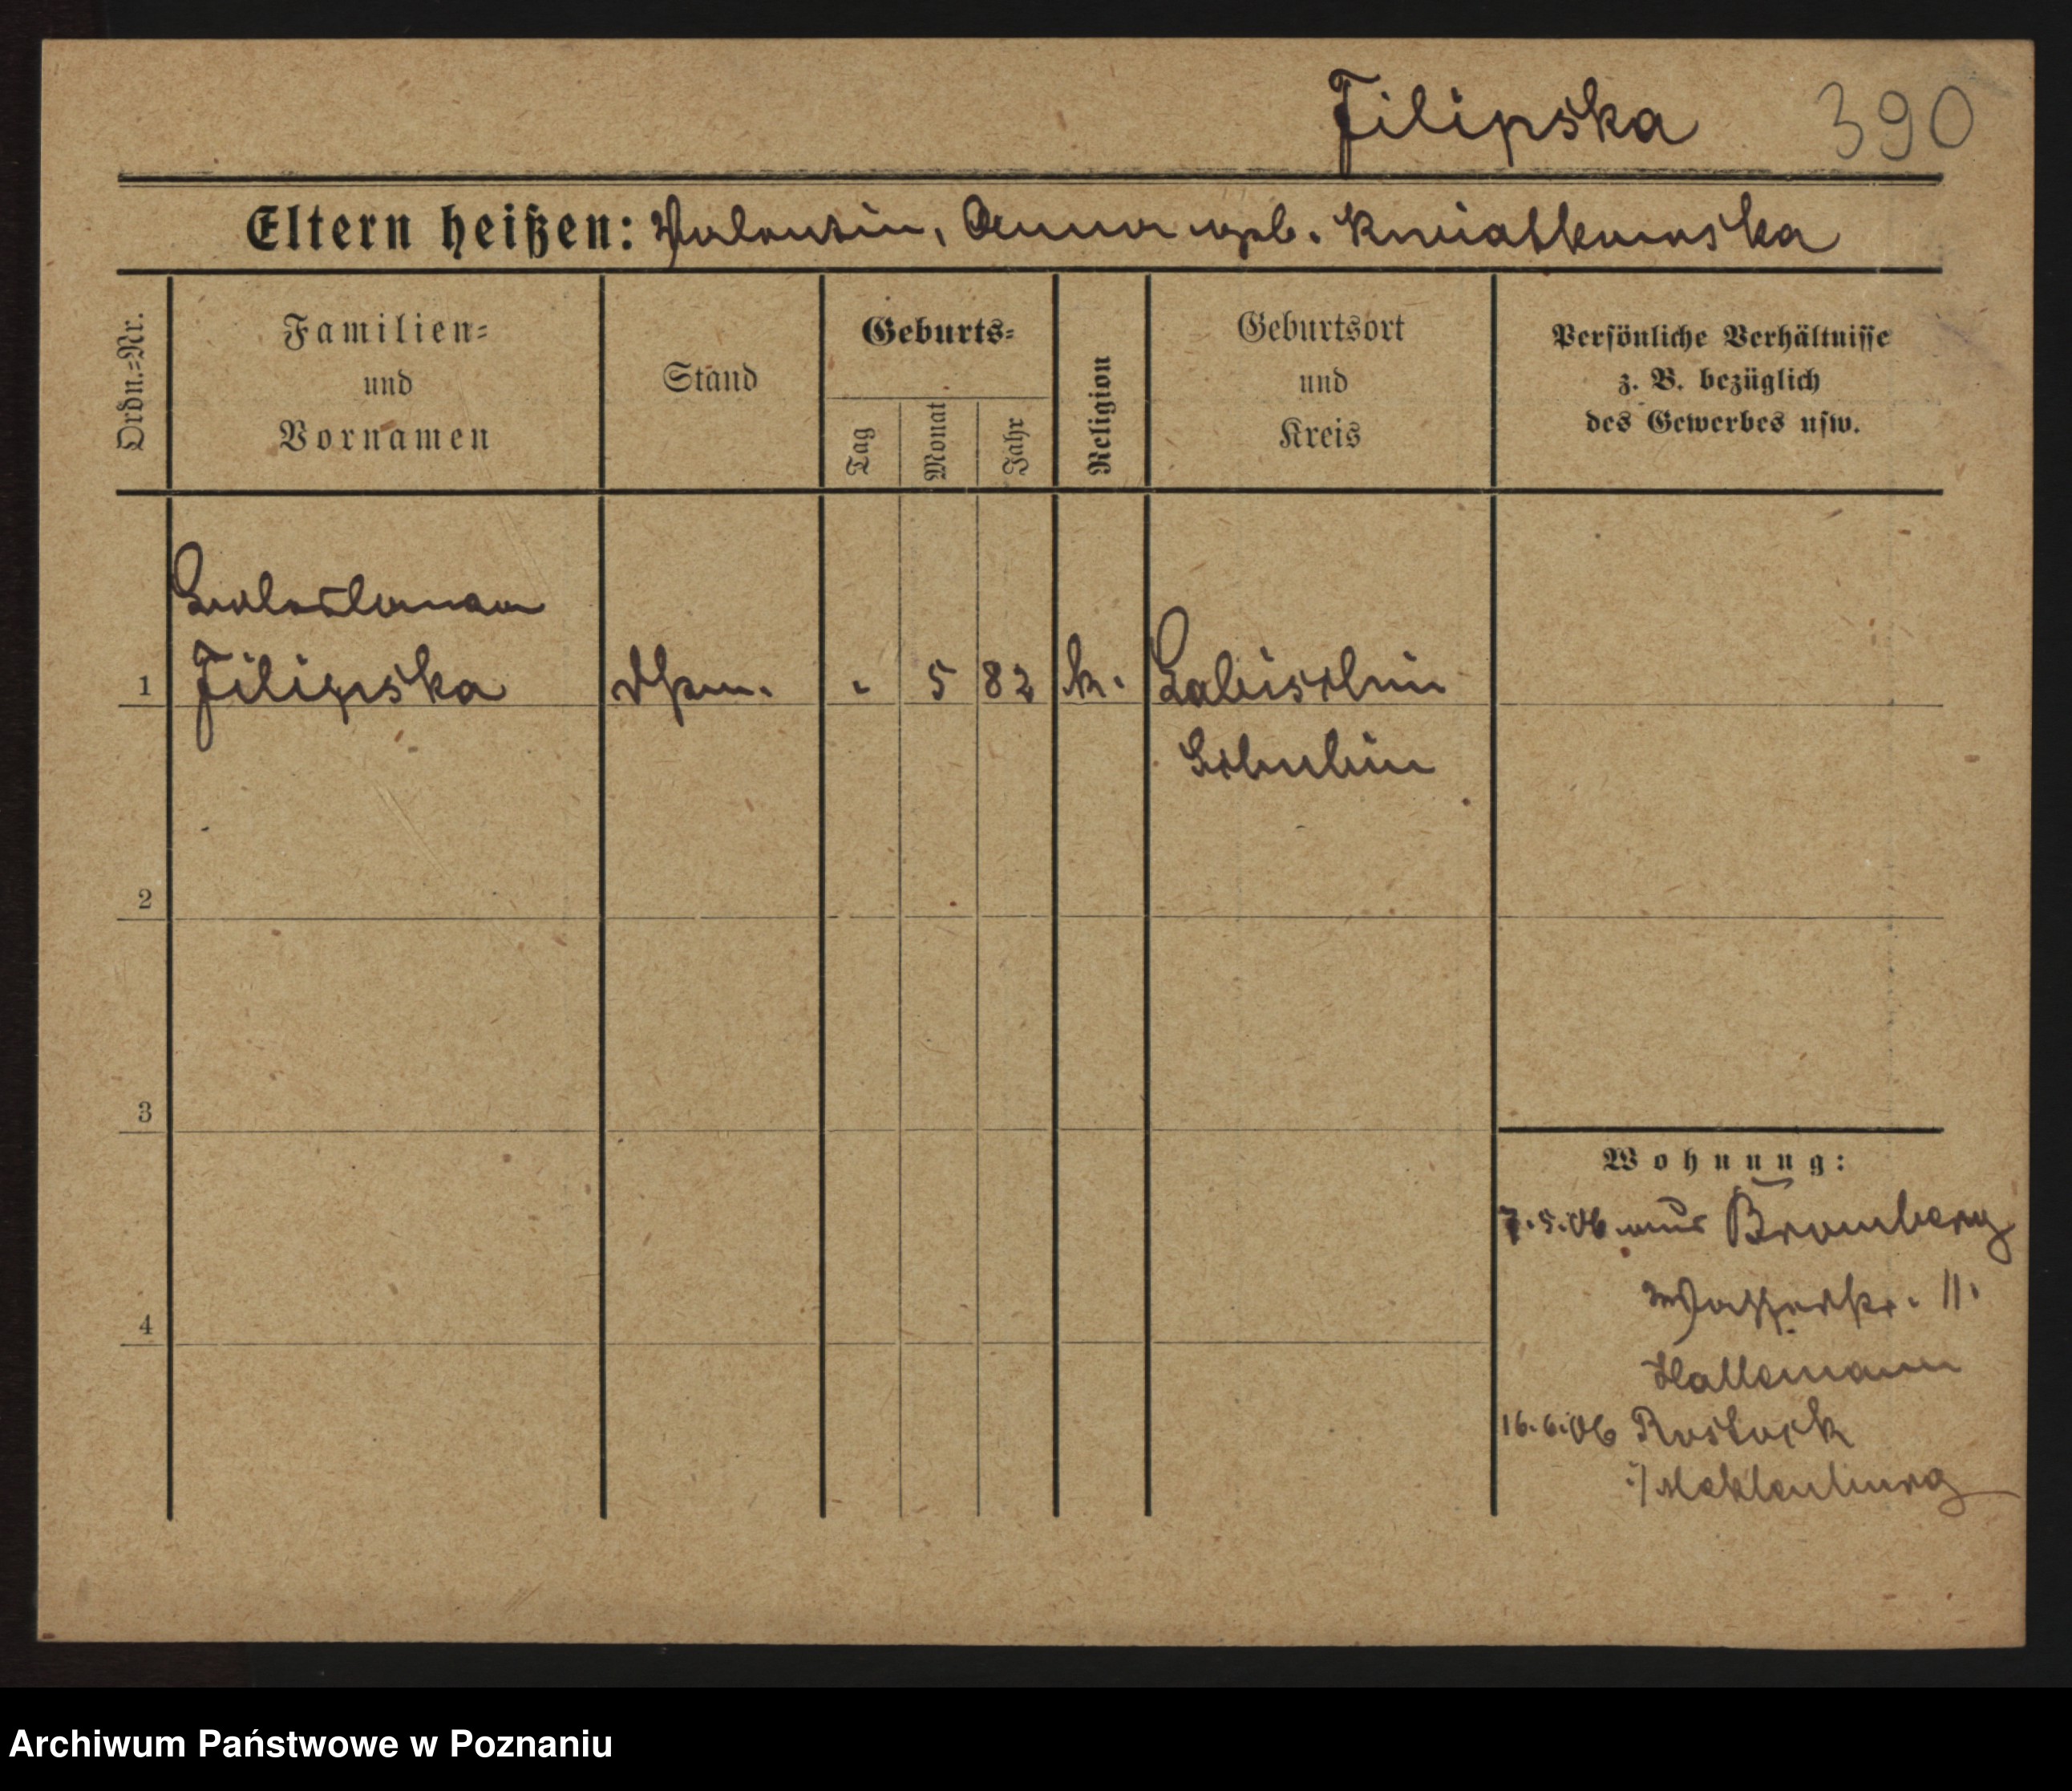 Filipska 390
Eltern heißen: Valentin, Anna geb. Kwiatkowska
Ordn.-Nr.
Familien-
und
Vornamen
Stand
Geburts-
Tag
Monat
Jahr
Religion
Geburtsort
und
Kreis
Persönliche Verhältnisse
z. B. bezüglich
des Gewerbes usw.
1 Filipska - 5 82 k. Labischin
Schubin
2
3
4
Wohnung:
7.5.06 aus Bromberg
Wasserstr. 11.
Hallemann
16.6.06 Rostock
i/Meklenburg
Archiwum Państwowe w Poznaniu